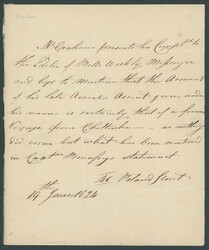 Mr Graham presents his Compts to
the Editor of Bells Weekly Messenger
and begs to mention that the Account
of his late Aerial Ascent given under
his name is certainly that of a former
Voyage from Cheltenham – as nothing
did occur but what has been mentioned
in Captn Beaufoys Statement
Poland Street
19th June 1824